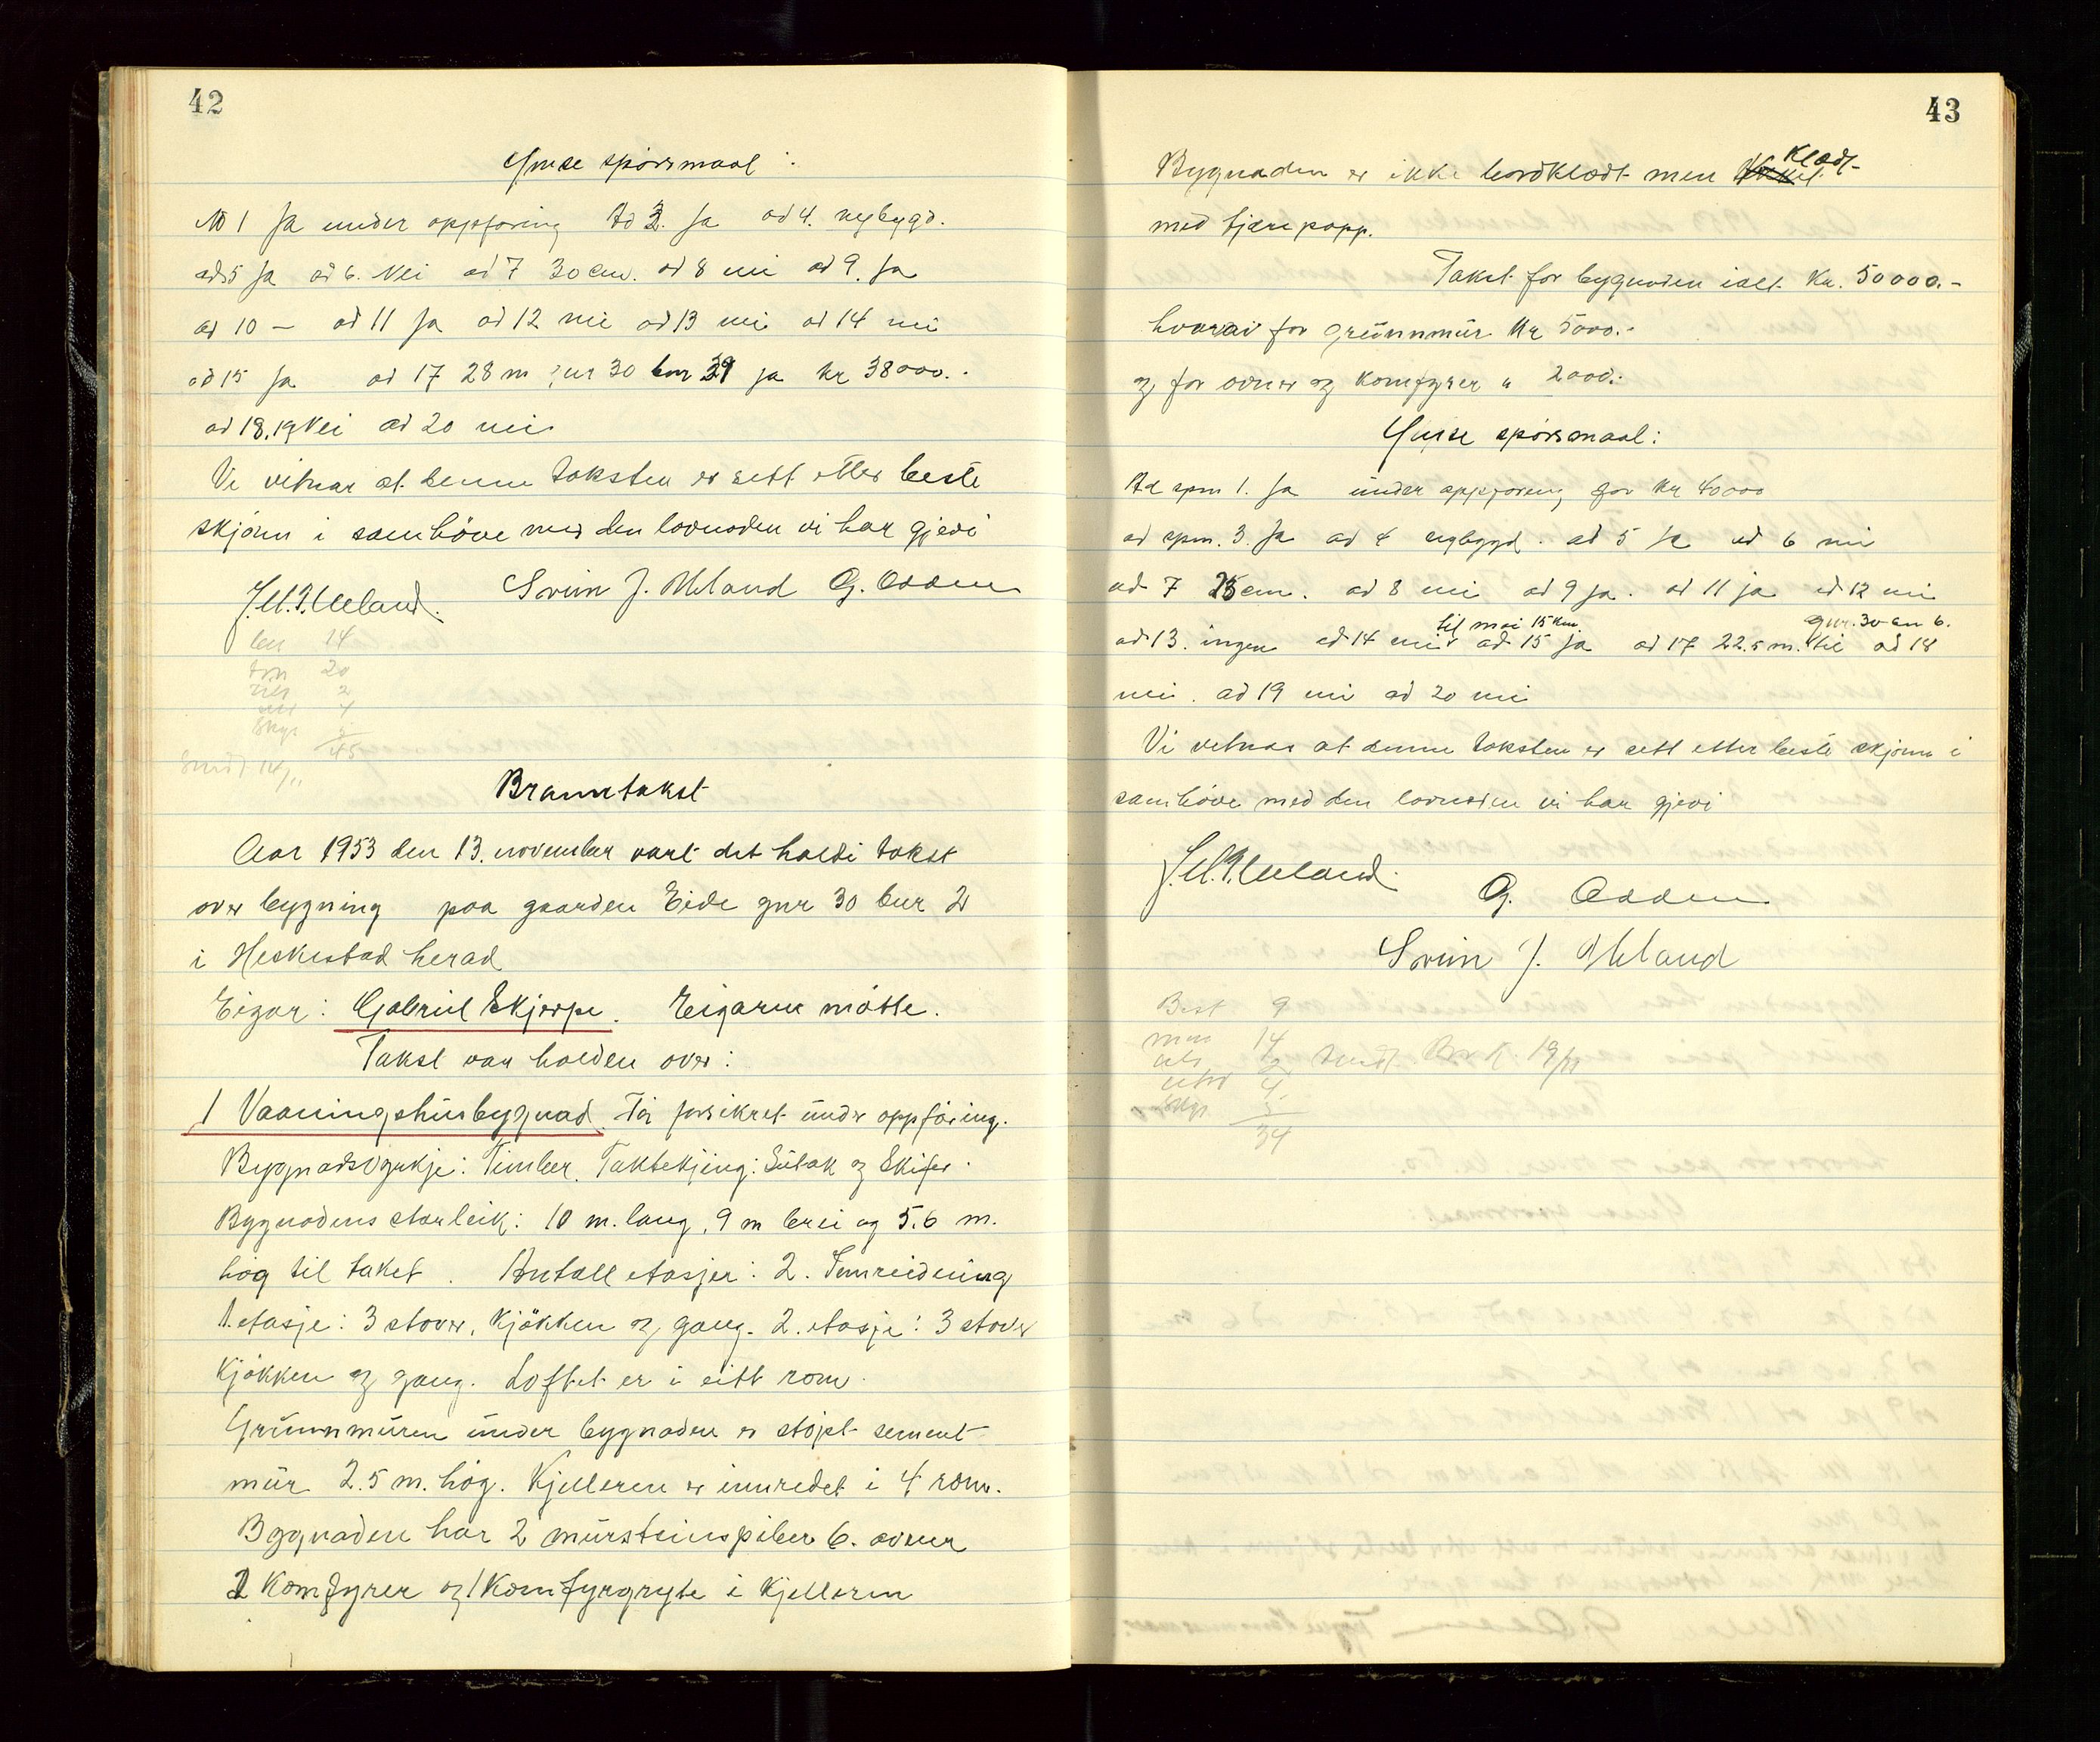 42
Ymse spörsmaal:
Ad 1 Ja under oppföring Ad 3. Ja ad 4. nybygd.
ad 5 Ja ad 6. Nei ad 7 30 cm. ad 8 nei ad 9. Ja
ad 10 — ad 11 Ja ad 12 nei ad 13 nei ad 14 nei
ad 15 Ja ad 17 28 m gnr 30 bnr 39 ja kr 38000.-
ad 18, 19 Nei ad 20 nei
Vi vitnar at denne taksten er sett etter beste
skjönn i samhöve med den lovnaden vi har gjevi
Svein J. Ueland G. Odden
14
20
2
4
Skys 5
45
Sendt 14/11
Branntakst
Aar 1953 den 13. november vart det haldi takst
over bygning paa gaarden Eide gnr 30 bnr 2
i Heskestad herad
Eigar: Gabriel Skjerpe. Eigaren mötte.
Takst var halden over:
1 Vaaningshusbygnad. För forsikret under oppföring.
Bygnadsvyrkje: Timber. Taktekjing: Sutak og Skifer.
Bygnadens storleik: 10 m. lang, 9 m brei og 5.6 m.
hög til taket. Antall etasjer: 2. Innreidning
1. etasje: 3 stover, kjökken og gang. 2. etasje: 3 stover
Kjökken og gang. Loftet er i eitt rom.
Grunnmuren under bygnaden er stöpt sement
mur 2.5 m. hög. Kjelleren er innredet i 4 rom.
Bygnaden har 2 mursteinspiber 6. ovner
2 Komfyrer og 1 Komfyrgryte i Kjelleren
43
Bygnaden er ikke bordklædt men klædt
med tjærepapp.
Takst for bygnaden ialt Kr. 50000.-
hvorav for grunnmur Kr 5000.-
og for ovner og komfyrer " 2000.-
Ymse spörsmaal:
Ad spm 1. Ja under oppföring for kr 40000
ad spm. 3. Ja ad 4 nybygd. ad 5 Ja ad 6 nei
ad 7 25 cm. ad 8 nei ad 9 ja. ad 11 ja ad 12 nei
til mai 15 km. gnr. 30 bn 6.
ad 13. ingen ad 14 nei ad 15 ja ad 17 22.5 m. til ad 18
nei. ad 19 nei ad 20 nei
Vi vitnar at denne taksten er sett etter beste skjönn i
samhöve med den lovnaden vi har gjevi
G. Odden
Svein J. Ueland
Best 9
14
2 Sendt 19/11
4
Skys 5
34